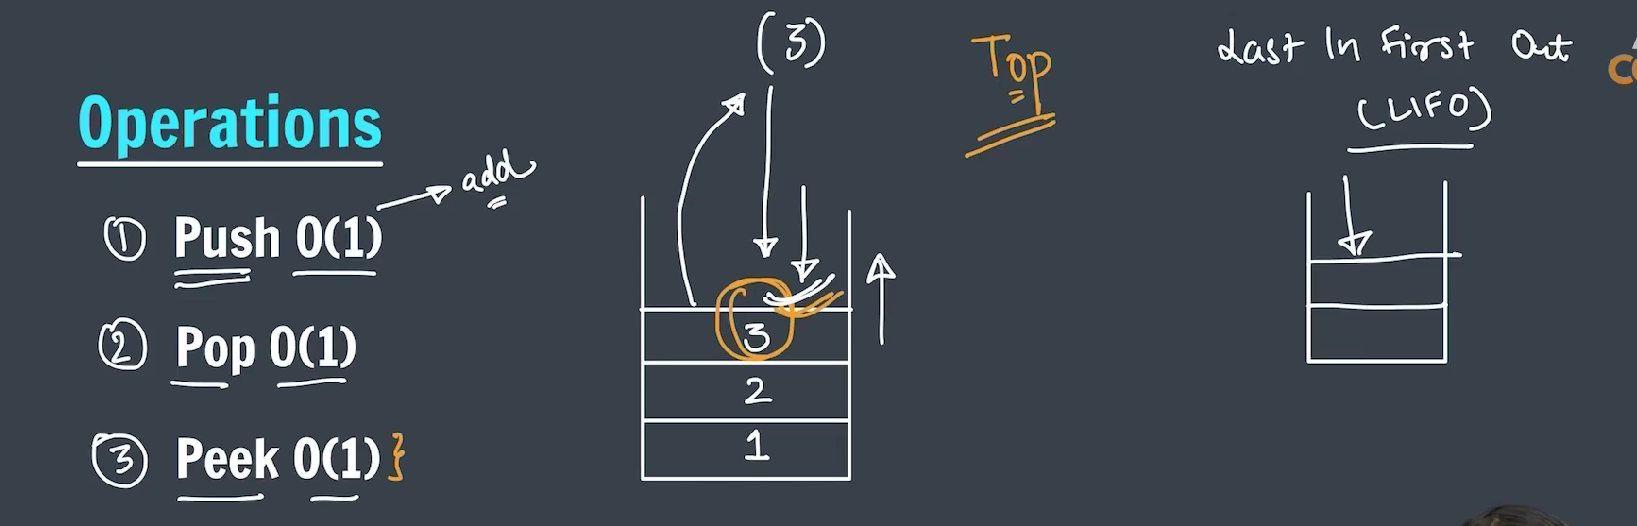 Operations
① Push O(1)
add
② Pop O(1)
③ Peek O(1)}
(3)
3
2
1
Top
Last In First Out
(LIFO)